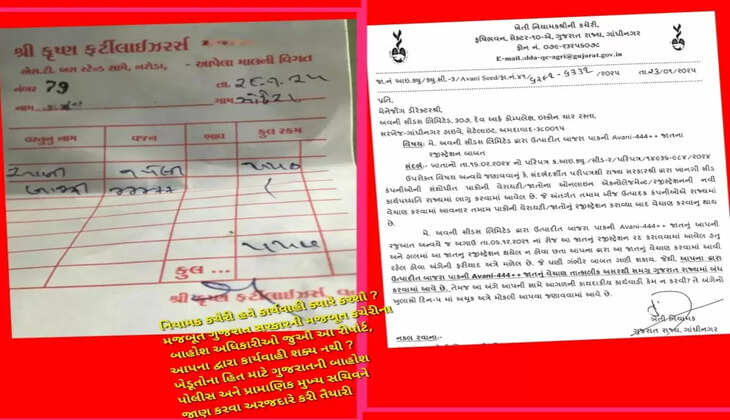 શ્રી કૃષ્ણ ફર્ટીલાઈઝરર્સ
એસ.ટી. બસ સ્ટેન્ડ સામે, નરોડા.
- આપેલા માલની વિગત
નંબર 79
તા. ૨૮.૧.૨૫
નામ
ગામ
વસ્તુનું નામ વજન ભાવ કુલ રકમ
કુલ ...
શ્રી કૃષ્ણ ફર્ટીલાઈઝર્સ વતી
નિયામક કચેરી હવે કાર્યવાહી ક્યારે કરશો ?
મજબૂત ગુજરાત સરકારની મજબૂત કચેરીના
બાહોશ અધિકારીઓ જુઓ આ રીપોર્ટ,
આપના દ્વારા કાર્યવાહી શક્ય નથી ?
ખેડૂતોના હિત માટે ગુજરાતની બાહોશ
પોલીસ અને પ્રામાણિક મુખ્ય સચિવને
જાણ કરવા અરજદારે કરી તૈયારી
ખેતી નિયામકશ્રીની કચેરી,
કૃષિભવન, સેક્ટર-૧૦-એ, ગુજરાત રાજ્ય, ગાંધીનગર
ફોન નં. ૦૭૯-૨૩૨૫૬૦૭૮
E-mail.:dda-qc-agri@gujarat.gov.in
તા.23/01/૨૦૨૫
પ્રતિ,
મેનેજીંગ ડીરેક્ટરશ્રી,
અવની સીડસ લિમિટેડ, ૩૦૭, દેવ આર્ક કોમ્પલેક્ષ, ઇસ્કોન ચાર રસ્તા,
સરખેજ-ગાંધીનગર હાઇવે, સેટેલાઇટ, અમદાવાદ-૩૮૦૦૧૫
વિષય: મે. અવની સીડસ લિમિટેડ દ્વારા ઉત્પાદીત બાજરા પાકની Avani-444++ જાતના
રજીસ્ટ્રેશન બાબત
ઉપરોક્ત વિષય અન્વયે જણાવવાનું કે, સંદર્ભદર્શીત પરીપત્રથી રાજ્ય સરકારશ્રી દ્વારા ખાનગી સીડ
કંપનીઓની સંશોધીત પાકની વેરાયટી/જાતોના ઓનલાઇન એકનોલેજમેન્ટ/રજીસ્ટ્રેશનની નવી
કાર્યપધ્ધતિ રાજ્યમાં લાગુ કરવામાં આવેલ છે. જે અંતર્ગત તમામ બીજ ઉત્પાદક કંપનીઓએ રાજ્યમાં
વેચાણ કરવામાં આવનાર તમામ પાકની વેરાયટી/જાતોનું રજીસ્ટ્રેશન કરાવ્યા બાદ વેચાણ કરવાનું થાય
છે.
મે. અવની સીડસ લિમિટેડ દ્વારા ઉત્પાદીત બાજરા પાકની Avani-444++ જાતનું આપની
રજુઆત અન્વયે જ અગાઉ તા.09.૧૨.૨૦૨૧ નાં રોજ આ જાતનું રજીસ્ટ્રેશન રદ કરવામાં આવેલ હતુ
અને હાલમાં આ જાતનુ રજીસ્ટ્રેશન થયેલ ન હોવા છતા આપના દ્વારા આ જાતનું વેચાણ કરવામાં આવી
રહેલ હોવા અંગેની ફરીયાદ અત્રે મળેલ છે. જે ઘણી ગંભીર બાબત ગણી શકાય. જેથી આપના દ્વારા
ઉત્પાદીત બાજરા પાકની Avani-444++ જાતનું વેચાણ તાત્કાલીક અસરથી સમગ્ર ગુજરાત રાજ્યમાં બંધ
કરવામાં આવે છે. તેમજ આ અંગે આપની સામે આગળની કાયદાકીય કાર્યવાહી કેમ ન કરવી? તે અંગેનો
ખુલાસો દિન-૫ માં અચૂક મોકલી આપવા જણાવવામાં આવે છે.
ખેતી નિયામક
ગુજરાત રાજ્ય, ગાંધીનગર
નકલ રવાના:-